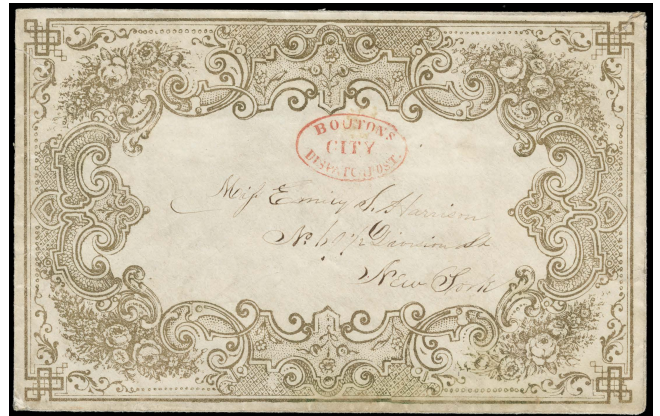 BOUTON'S
CITY
DISPATCH POST.
Miss Emily S. Harrison
No. 60½ Division St.
New York